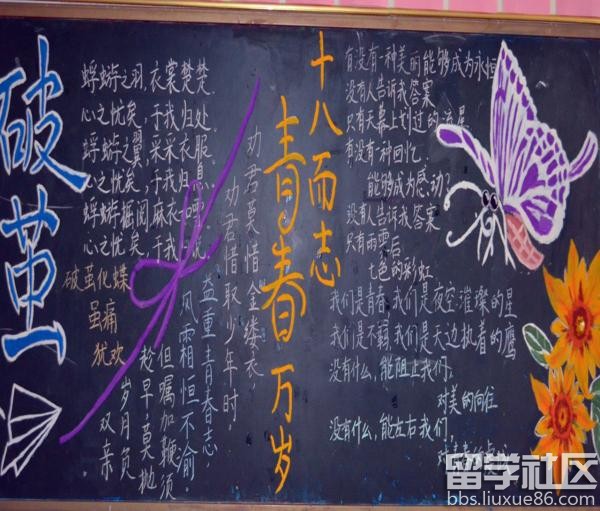 破茧
蜉蝣之羽,衣裳楚楚.
心之忧矣,于我归处.
蜉蝣之翼,采采衣服.
心之忧矣,于我归息.
蜉蝣掘阅,麻衣
心之忧矣,于我
破茧化蝶
虽痛
犹欢
劝君莫惜金缕衣,
劝君惜取少年时.
益重青春志,
风霜相恒不渝.
但嘱加鞭须
趁早,莫抛
岁月负
双亲.
十八而志
青春万岁
有没有一种美丽能够成为永恒
没有人告诉我答案
只有天幕上划过的流星
有没有一种回忆.
能够成为感动;
没有人告诉我答案
只有雨雲后
七色的彩虹
我们是青春,我们是夜空璀璨的星
我们是不羁,我们是天边执着的鹰
没有什么,能阻止我们,
对美的向往
没有什么,能左右我们.
留学社区
bbs.liuxue86.com